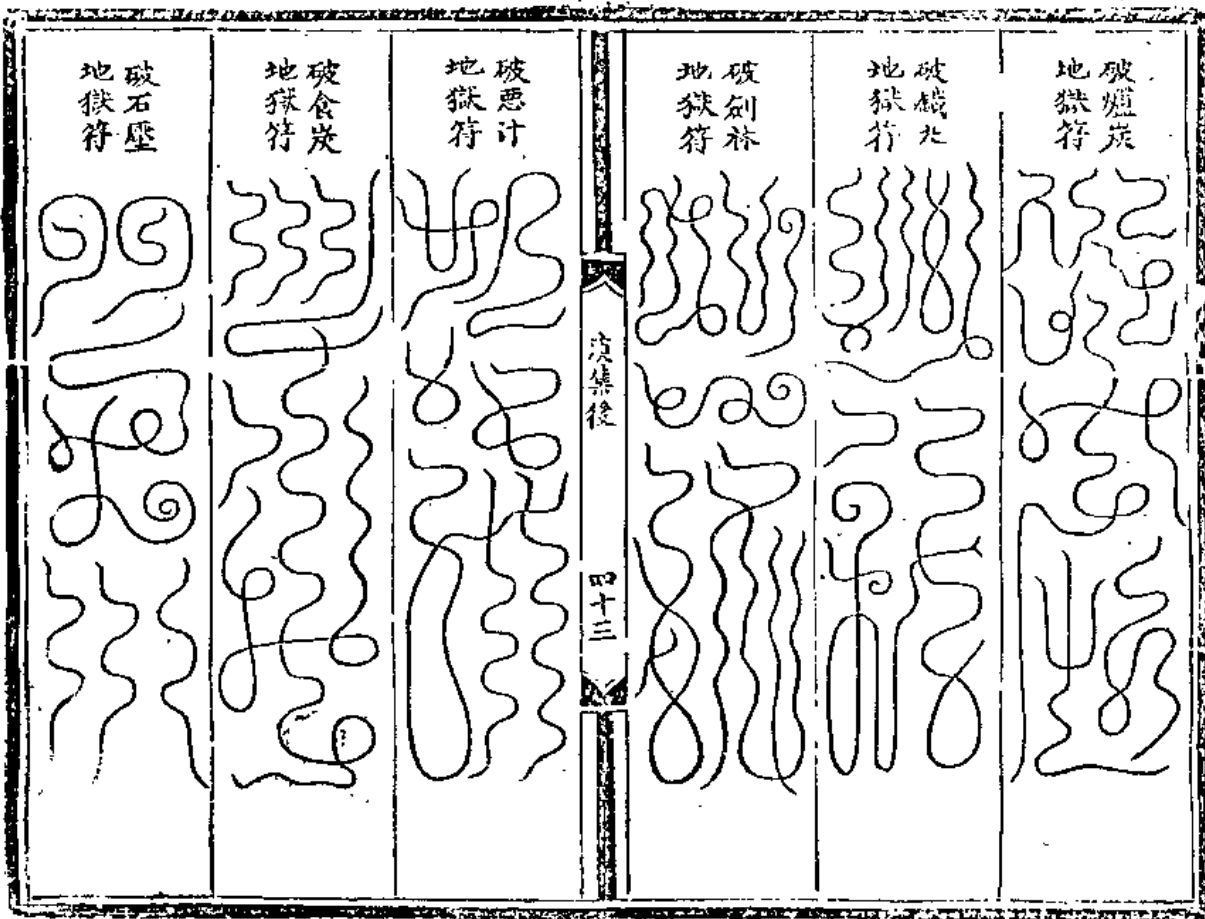 破爐炭
地獄符
破鐵
地獄符
破劍林
地獄符
集後
四十三
破悪計
地獄符
破食炭
地獄符
破石壓
地獄符